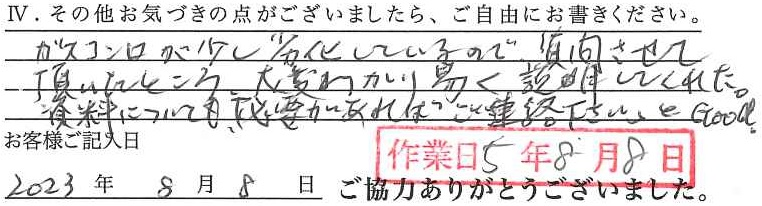 Ⅳ．その他お気づきの点がございましたら、ご自由にお書きください。
ガスコンロが少し劣化しているので質問させて
頂いたところ、大変わかり易く説明してくれた。
資料についても、必要があればご連絡下さい。と Good!
お客様ご記入日
作業日 5 年 8 月 8 日
2023 年 8 月 8 日 ご協力ありがとうございました。